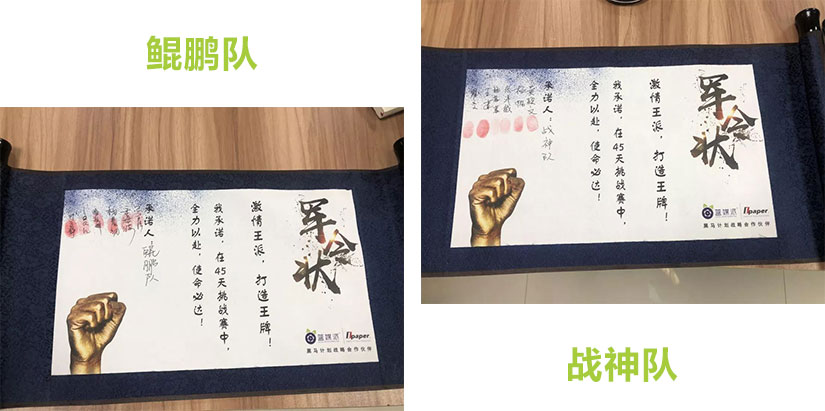 鲲鹏队
军令状
激情王派，打造王牌！
我承诺，在45天挑战赛中，
全力以赴，使命必达！
承诺人：鲲鹏队
蓝媒派 Πpaper
黑马计划战略合作伙伴
军令状
激情王派，打造王牌！
我承诺，在45天挑战赛中，
全力以赴，使命必达！
承诺人：战神队
蓝媒派 Πpaper
黑马计划战略合作伙伴
战神队